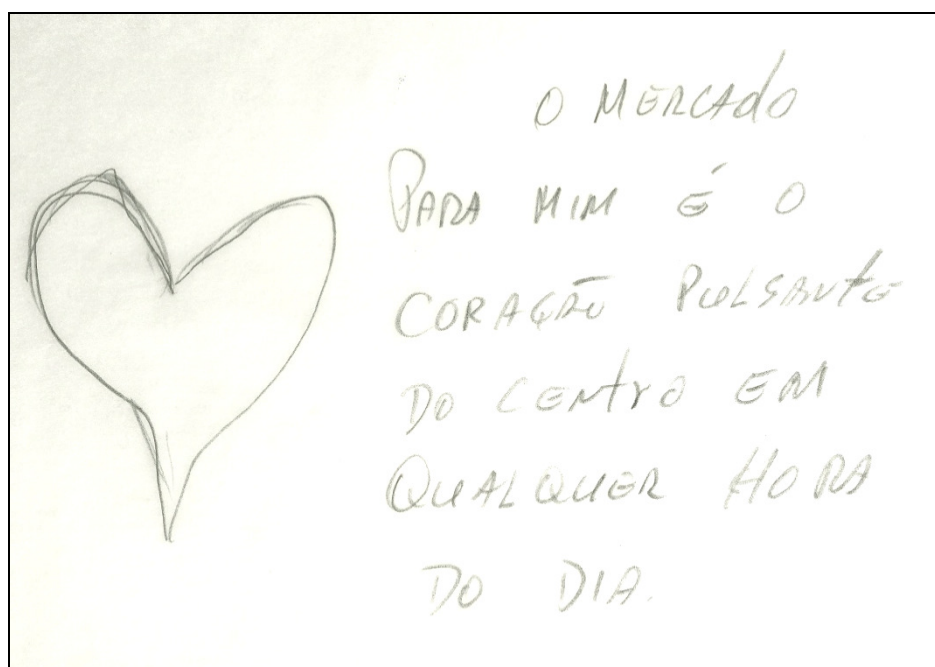 O MERCAdO
PARA MIM É O
CORAÇÃO PULSANtE
DO CENtrO EM
QUALQUER HORA
DO DIA.